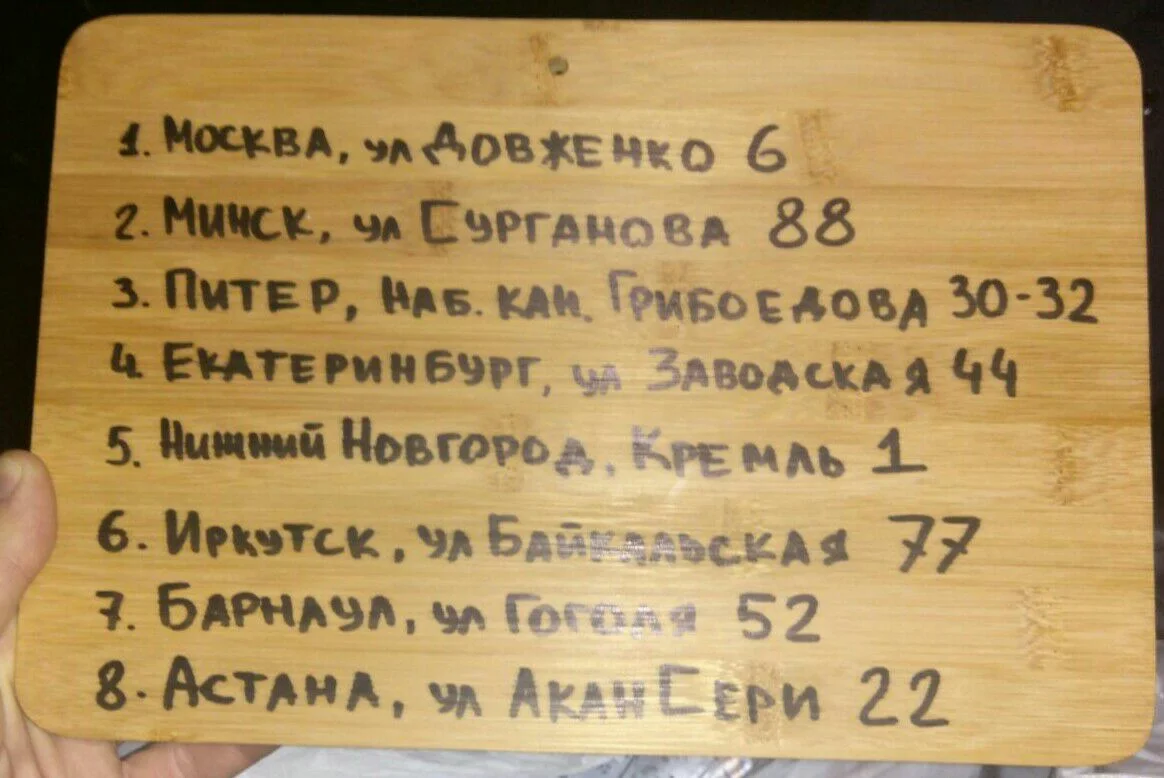 1. Москва, ул Довженко 6
2. Минск, ул Сурганова 88
3. Питер, наб. кан. Грибоедова 30-32
4. Екатеринбург, ул Заводская 44
5. Нижний Новгород, Кремль 1
6. Иркутск, ул Байкальская 77
7. Барнаул, ул Гоголя 52
8. Астана, ул Акан Сери 22